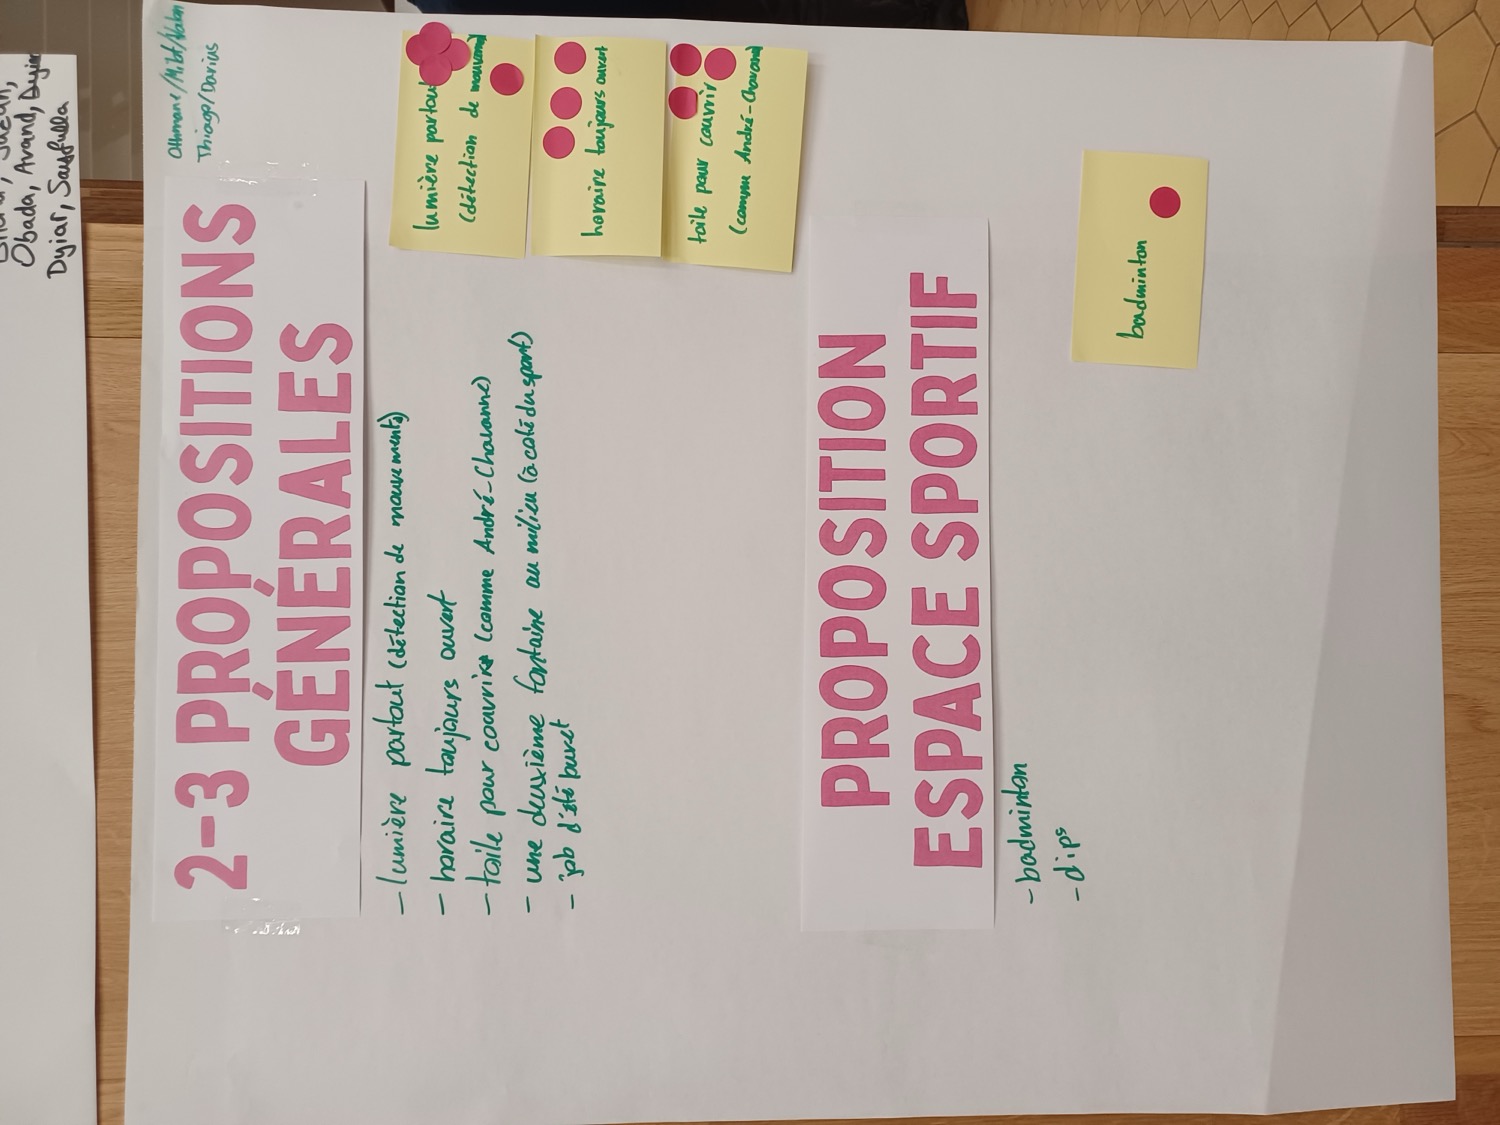 Obada, Avand,
Dyjar, Sayfulla
Othmane/
Thiago/Darius
2-3 PROPOSITIONS
GÉNÉRALES
- lumière partout (détection de mouvements)
- horaire toujours ouvert
- toile pour couvrir (comme André-Chavanne)
- une deuxième fontaine au milieu (à coté du sport)
- job d'été buvet
lumière partout
(détection de mouvement)
horaire toujours ouvert
toile pour couvrir
(comme André-Chavanne)
PROPOSITION
ESPACE SPORTIF
- badminton
- dips
badminton